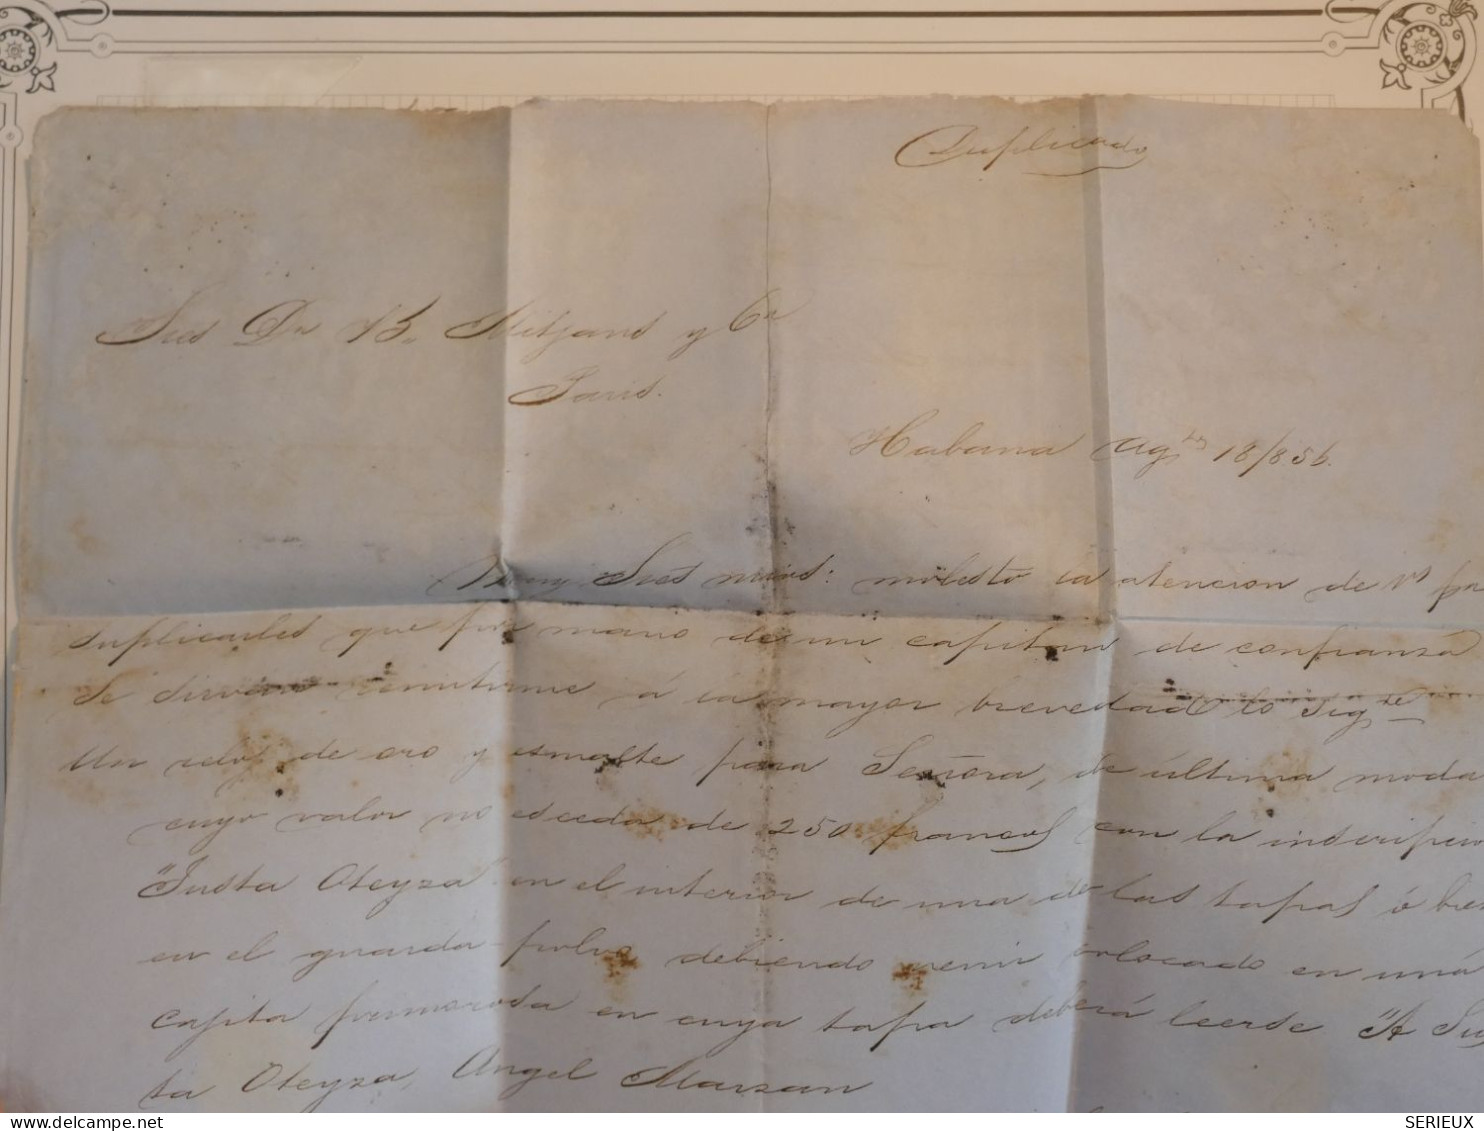 Duplicado
Sres Dn B. Mitjans y Ca
Paris.
Habana Agto 18/856.
Muy Sres mios: molesto la atencion de Vs para
suplicarles que por mano de un capitan de confianza
se sirvan remitirme á la mayor brevedad lo Sigte
Un reloj de oro y esmalte para Señora, de última moda
cuyo valor no esceda de 250 francos con la inscripcion
"Justa Oteyza" en el interior de una de las tapas ó bien
en el guarda-polvo debiendo venir colocado en una
cajita primorosa en cuya tapa deberá leerse "A Jus
ta Oteyza, Angel Marzan
SERIEUX